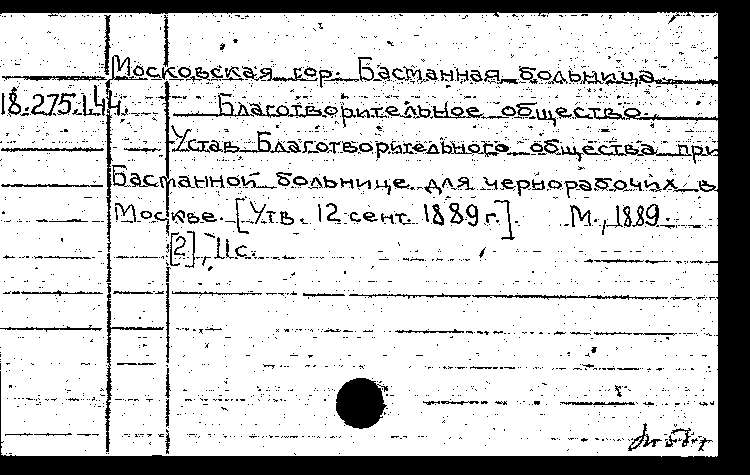 Московская гор. Басманная больница.
18.275.1.44. Благотворительное общество.
Устав Благотворительного общества при
Басманной больнице для чернорабочих в
Москве. [Утв. 12 сент. 1889 г.]. М., 1889.
[2], 11 с.